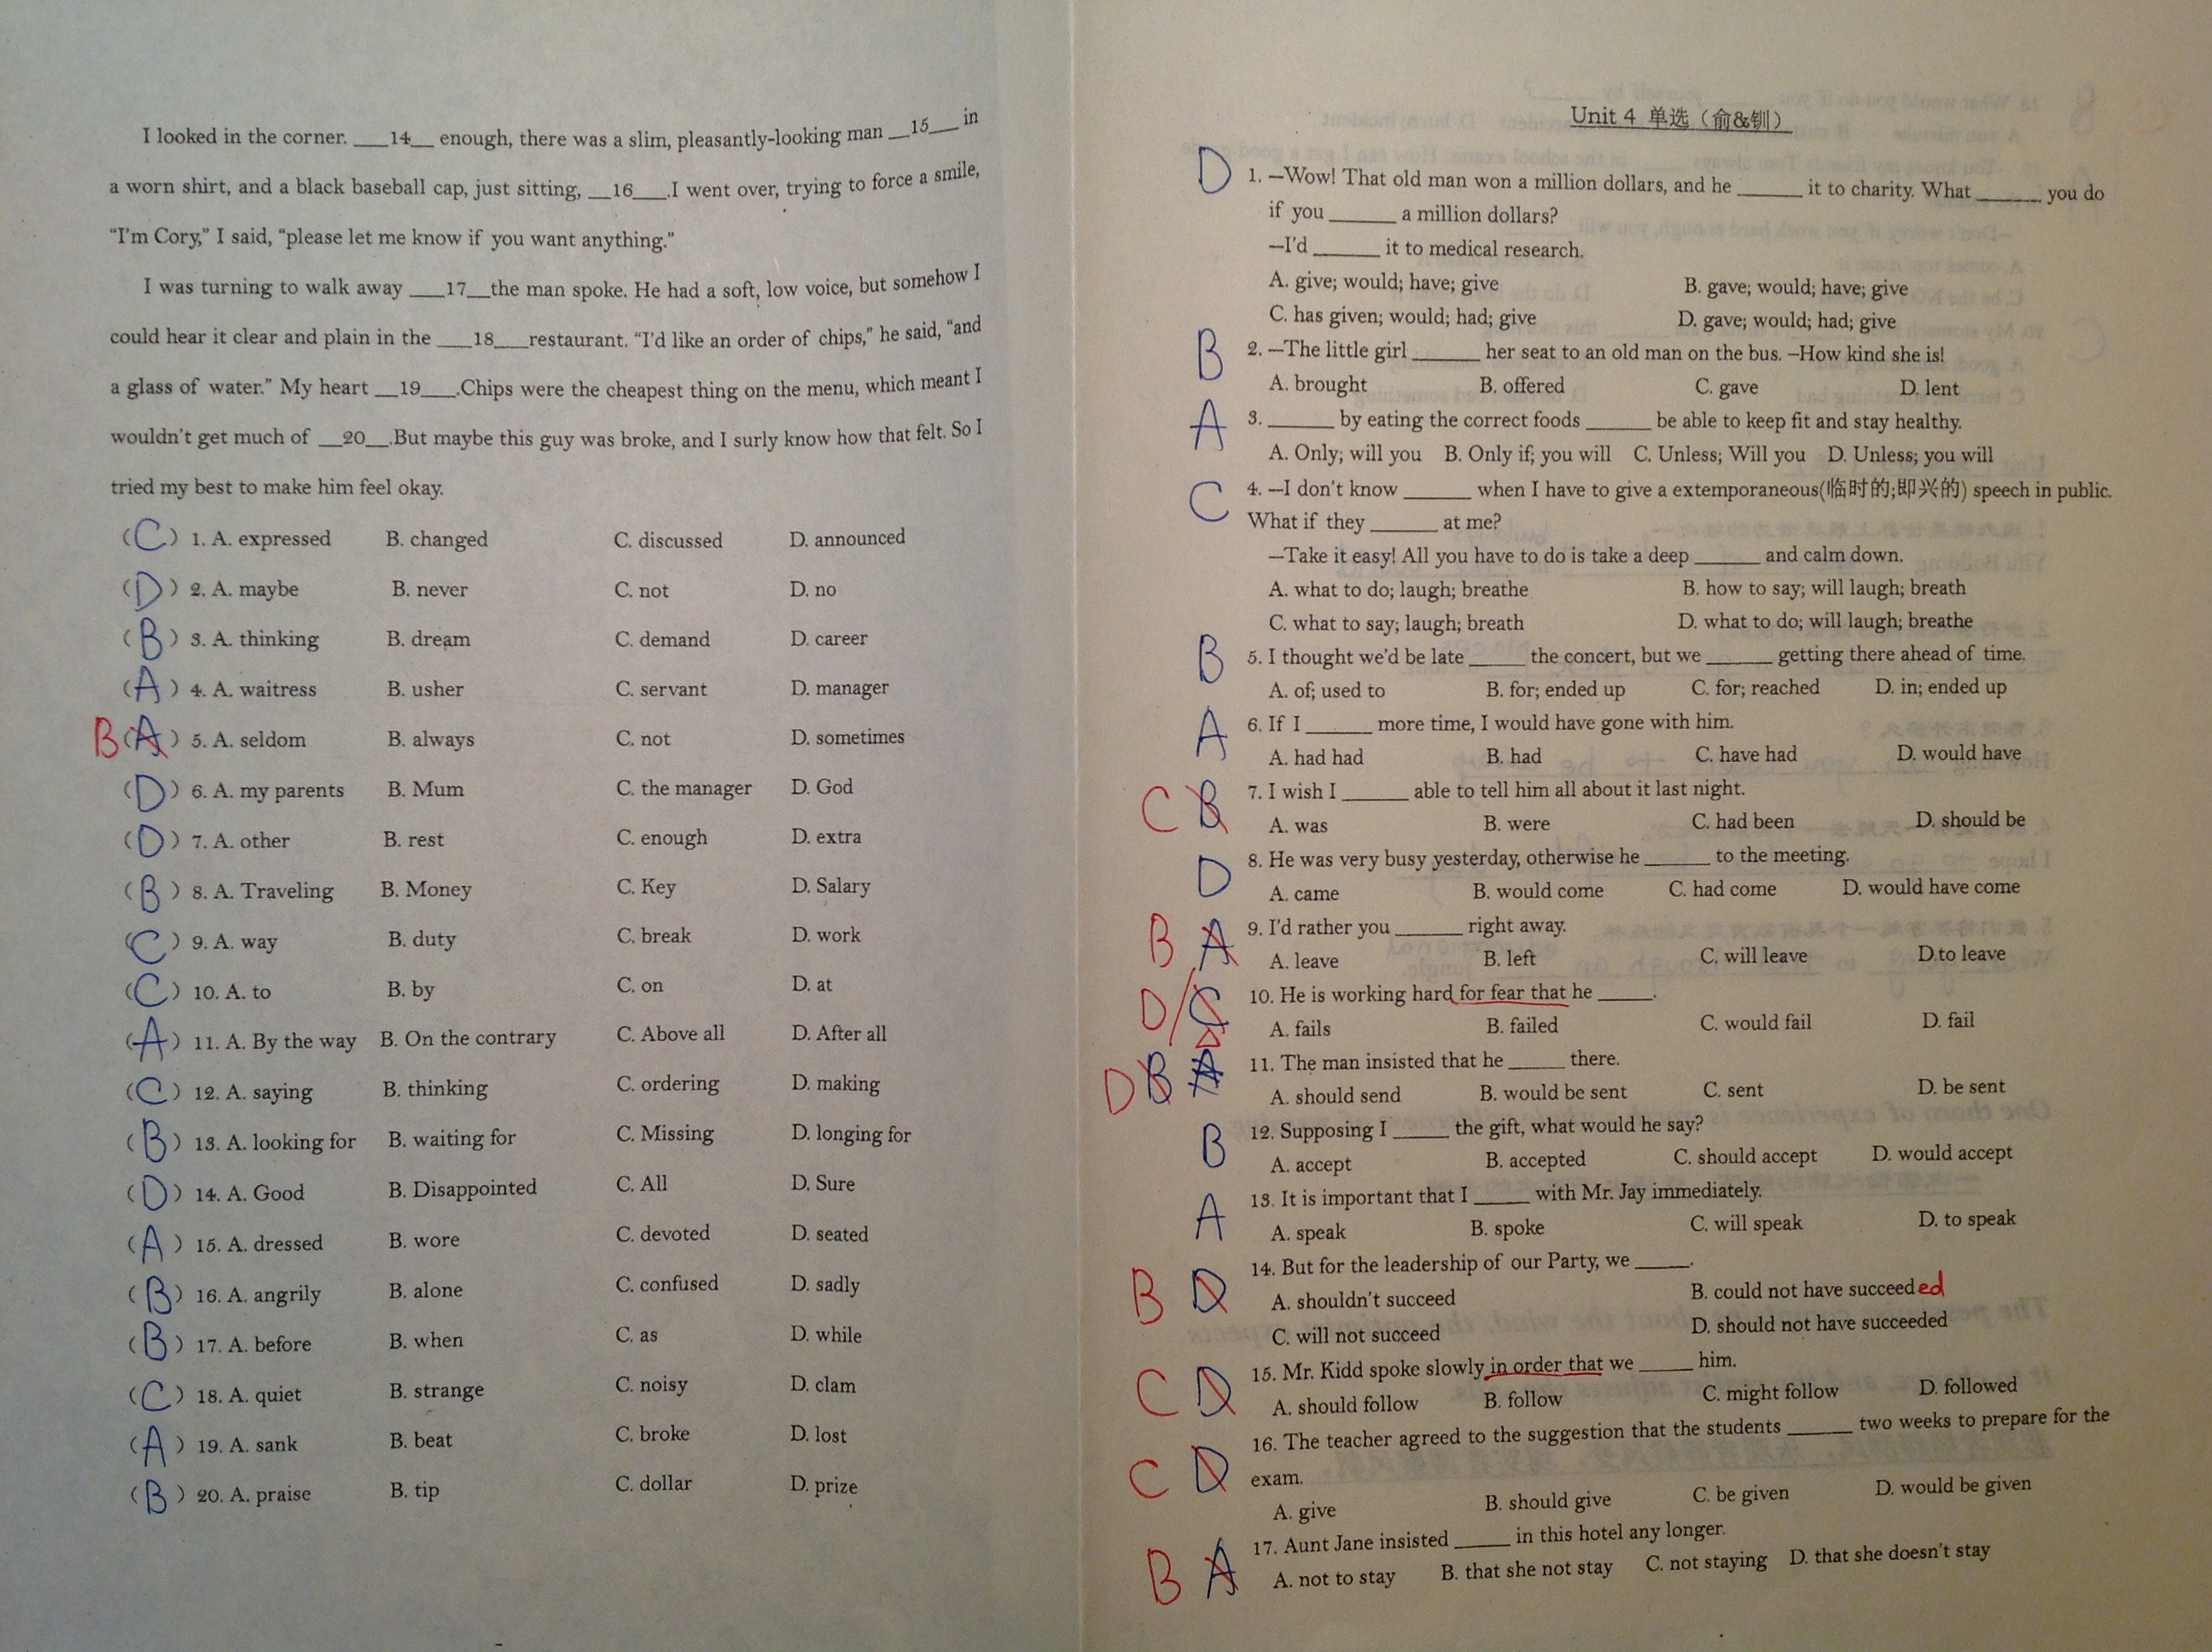 I looked in the corner. ___14__ enough, there was a slim, pleasantly-looking man __15___ in
a worn shirt, and a black baseball cap, just sitting, __16___.I went over, trying to force a smile,
“I'm Cory,” I said, “please let me know if you want anything.”
I was turning to walk away ___17__the man spoke. He had a soft, low voice, but somehow I
could hear it clear and plain in the ___18___restaurant. “I'd like an order of chips,” he said, “and
a glass of water.” My heart __19___.Chips were the cheapest thing on the menu, which meant I
wouldn't get much of __20__.But maybe this guy was broke, and I surly know how that felt. So I
tried my best to make him feel okay.
(C) 1. A. expressed B. changed C. discussed D. announced
(D) 2. A. maybe B. never C. not D. no
(B) 3. A. thinking B. dream C. demand D. career
(A) 4. A. waitress B. usher C. servant D. manager
B(A) 5. A. seldom B. always C. not D. sometimes
(D) 6. A. my parents B. Mum C. the manager D. God
(D) 7. A. other B. rest C. enough D. extra
(B) 8. A. Traveling B. Money C. Key D. Salary
(C) 9. A. way B. duty C. break D. work
(C) 10. A. to B. by C. on D. at
(A) 11. A. By the way B. On the contrary C. Above all D. After all
(C) 12. A. saying B. thinking C. ordering D. making
(B) 13. A. looking for B. waiting for C. Missing D. longing for
(D) 14. A. Good B. Disappointed C. All D. Sure
(A) 15. A. dressed B. wore C. devoted D. seated
(B) 16. A. angrily B. alone C. confused D. sadly
(B) 17. A. before B. when C. as D. while
(C) 18. A. quiet B. strange C. noisy D. clam
(A) 19. A. sank B. beat C. broke D. lost
(B) 20. A. praise B. tip C. dollar D. prize
Unit 4 单选（俞&钏）
D 1. –Wow! That old man won a million dollars, and he ______ it to charity. What ______ you do
if you ______ a million dollars?
–I'd ______ it to medical research.
A. give; would; have; give B. gave; would; have; give
C. has given; would; had; give D. gave; would; had; give
B 2. –The little girl ______ her seat to an old man on the bus. –How kind she is!
A. brought B. offered C. gave D. lent
A 3. ______ by eating the correct foods ______ be able to keep fit and stay healthy.
A. Only; will you B. Only if; you will C. Unless; Will you D. Unless; you will
C 4. –I don't know ______ when I have to give a extemporaneous(临时的;即兴的) speech in public.
What if they ______ at me?
–Take it easy! All you have to do is take a deep ______ and calm down.
A. what to do; laugh; breathe B. how to say; will laugh; breath
C. what to say; laugh; breath D. what to do; will laugh; breathe
B 5. I thought we'd be late _____ the concert, but we ______ getting there ahead of time.
A. of; used to B. for; ended up C. for; reached D. in; ended up
A 6. If I ______ more time, I would have gone with him.
A. had had B. had C. have had D. would have
C B 7. I wish I ______ able to tell him all about it last night.
A. was B. were C. had been D. should be
D 8. He was very busy yesterday, otherwise he ______ to the meeting.
A. came B. would come C. had come D. would have come
B A 9. I'd rather you ______ right away.
A. leave B. left C. will leave D.to leave
D/C 10. He is working hard for fear that he _____.
A. fails B. failed C. would fail D. fail
D B A 11. The man insisted that he _____ there.
A. should send B. would be sent C. sent D. be sent
B 12. Supposing I _____ the gift, what would he say?
A. accept B. accepted C. should accept D. would accept
A 13. It is important that I _____ with Mr. Jay immediately.
A. speak B. spoke C. will speak D. to speak
B D 14. But for the leadership of our Party, we _____.
A. shouldn't succeed B. could not have succeeded
C. will not succeed D. should not have succeeded
C D 15. Mr. Kidd spoke slowly in order that we _____ him.
A. should follow B. follow C. might follow D. followed
C D 16. The teacher agreed to the suggestion that the students ______ two weeks to prepare for the
exam.
A. give B. should give C. be given D. would be given
B A 17. Aunt Jane insisted _____ in this hotel any longer.
A. not to stay B. that she not stay C. not staying D. that she doesn't stay